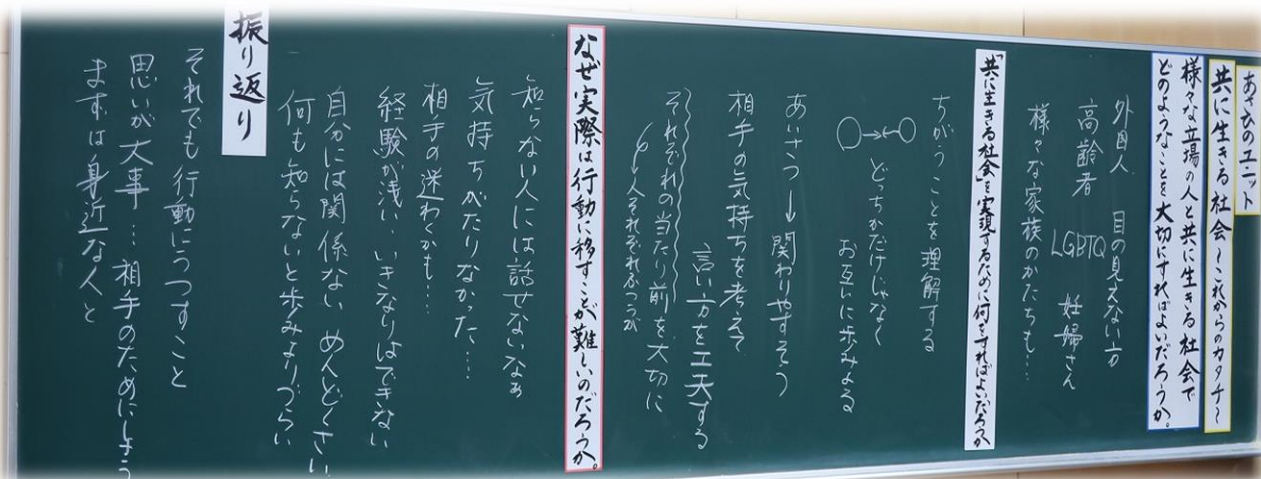 あさひのユニット
共に生きる社会～これからのカタチ～
様々な立場の人と共に生きる社会で
どのようなことを大切にすればよいだろうか。
外国人 目の見えない方
高齢者 LGBTQ 妊婦さん
様々な家族のかたちも…
「共に生きる社会」を実現するために何をすればよいだろうか
ちがうことを理解する
どっちかだけじゃなく
お互いに歩みよる
あいさつ→関わりやすそう
相手の気持ちを考えて
言い方を工夫する
それぞれの当たり前を大切に
人それぞれ
なぜ実際は行動に移すことが難しいのだろうか。
知らない人には話せないなぁ
気持ちがたりなかった…
相手の迷わくかも…
経験が浅い、いきなりはできない
自分には関係ない めんどくさい
何も知らないと歩みよりづらい
振り返り
それでも行動にうつすこと
思いが大事…相手のためにしよう
まずは身近な人と